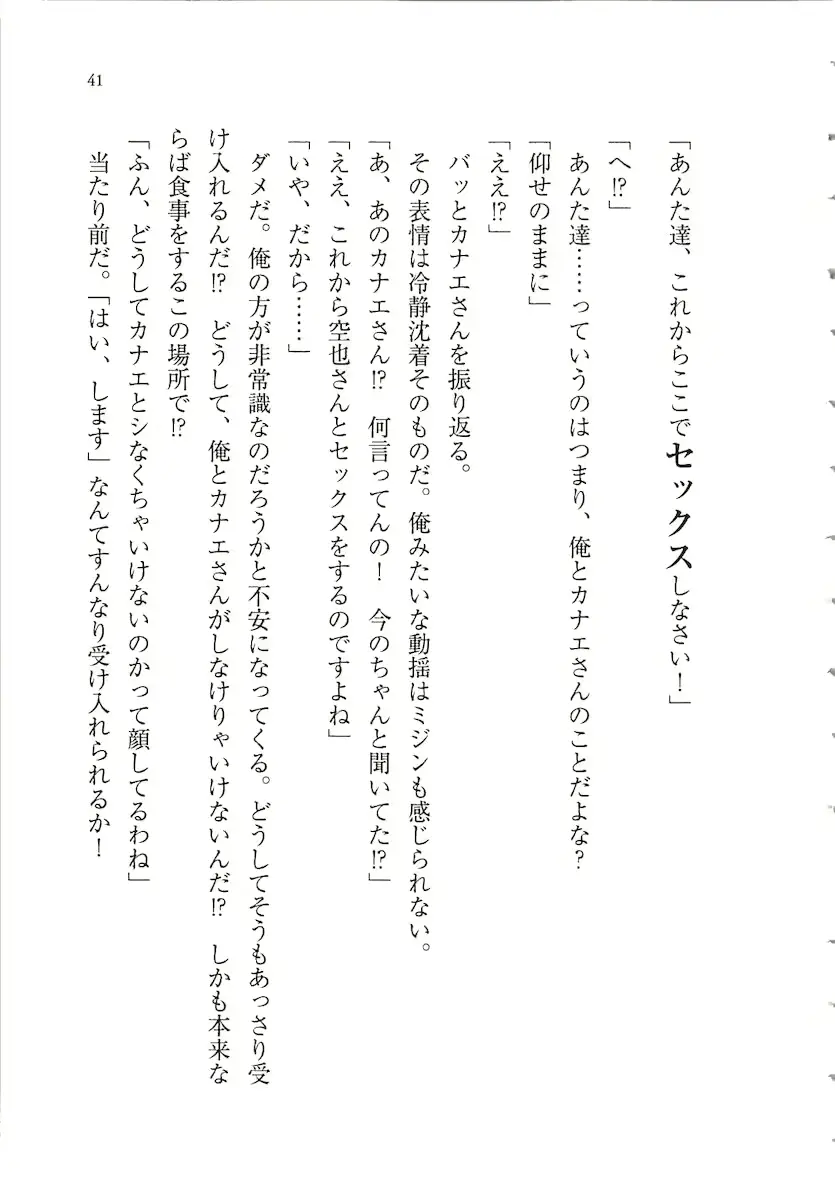 「あんた達、これからここでセックスしなさい！」
「へ!?」
あんた達……っていうのはつまり、俺とカナエさんのことだよな？
「仰せのままに」
「ええ!?」
バッとカナエさんを振り返る。
その表情は冷静沈着そのものだ。俺みたいな動揺はミジンも感じられない。
「あ、あのカナエさん!?　何言ってんの！　今のちゃんと聞いてた!?」
「ええ、これから空也さんとセックスをするのですよね」
「いや、だから……」
ダメだ。俺の方が非常識なのだろうかと不安になってくる。どうしてそうもあっさり受
け入れるんだ!?　どうして、俺とカナエさんがしなけりゃいけないんだ!?　しかも本来な
らば食事をするこの場所で!?
「ふん、どうしてカナエとシなくちゃいけないのかって顔してるわね」
当たり前だ。「はい、します」なんてすんなり受け入れられるか！
41